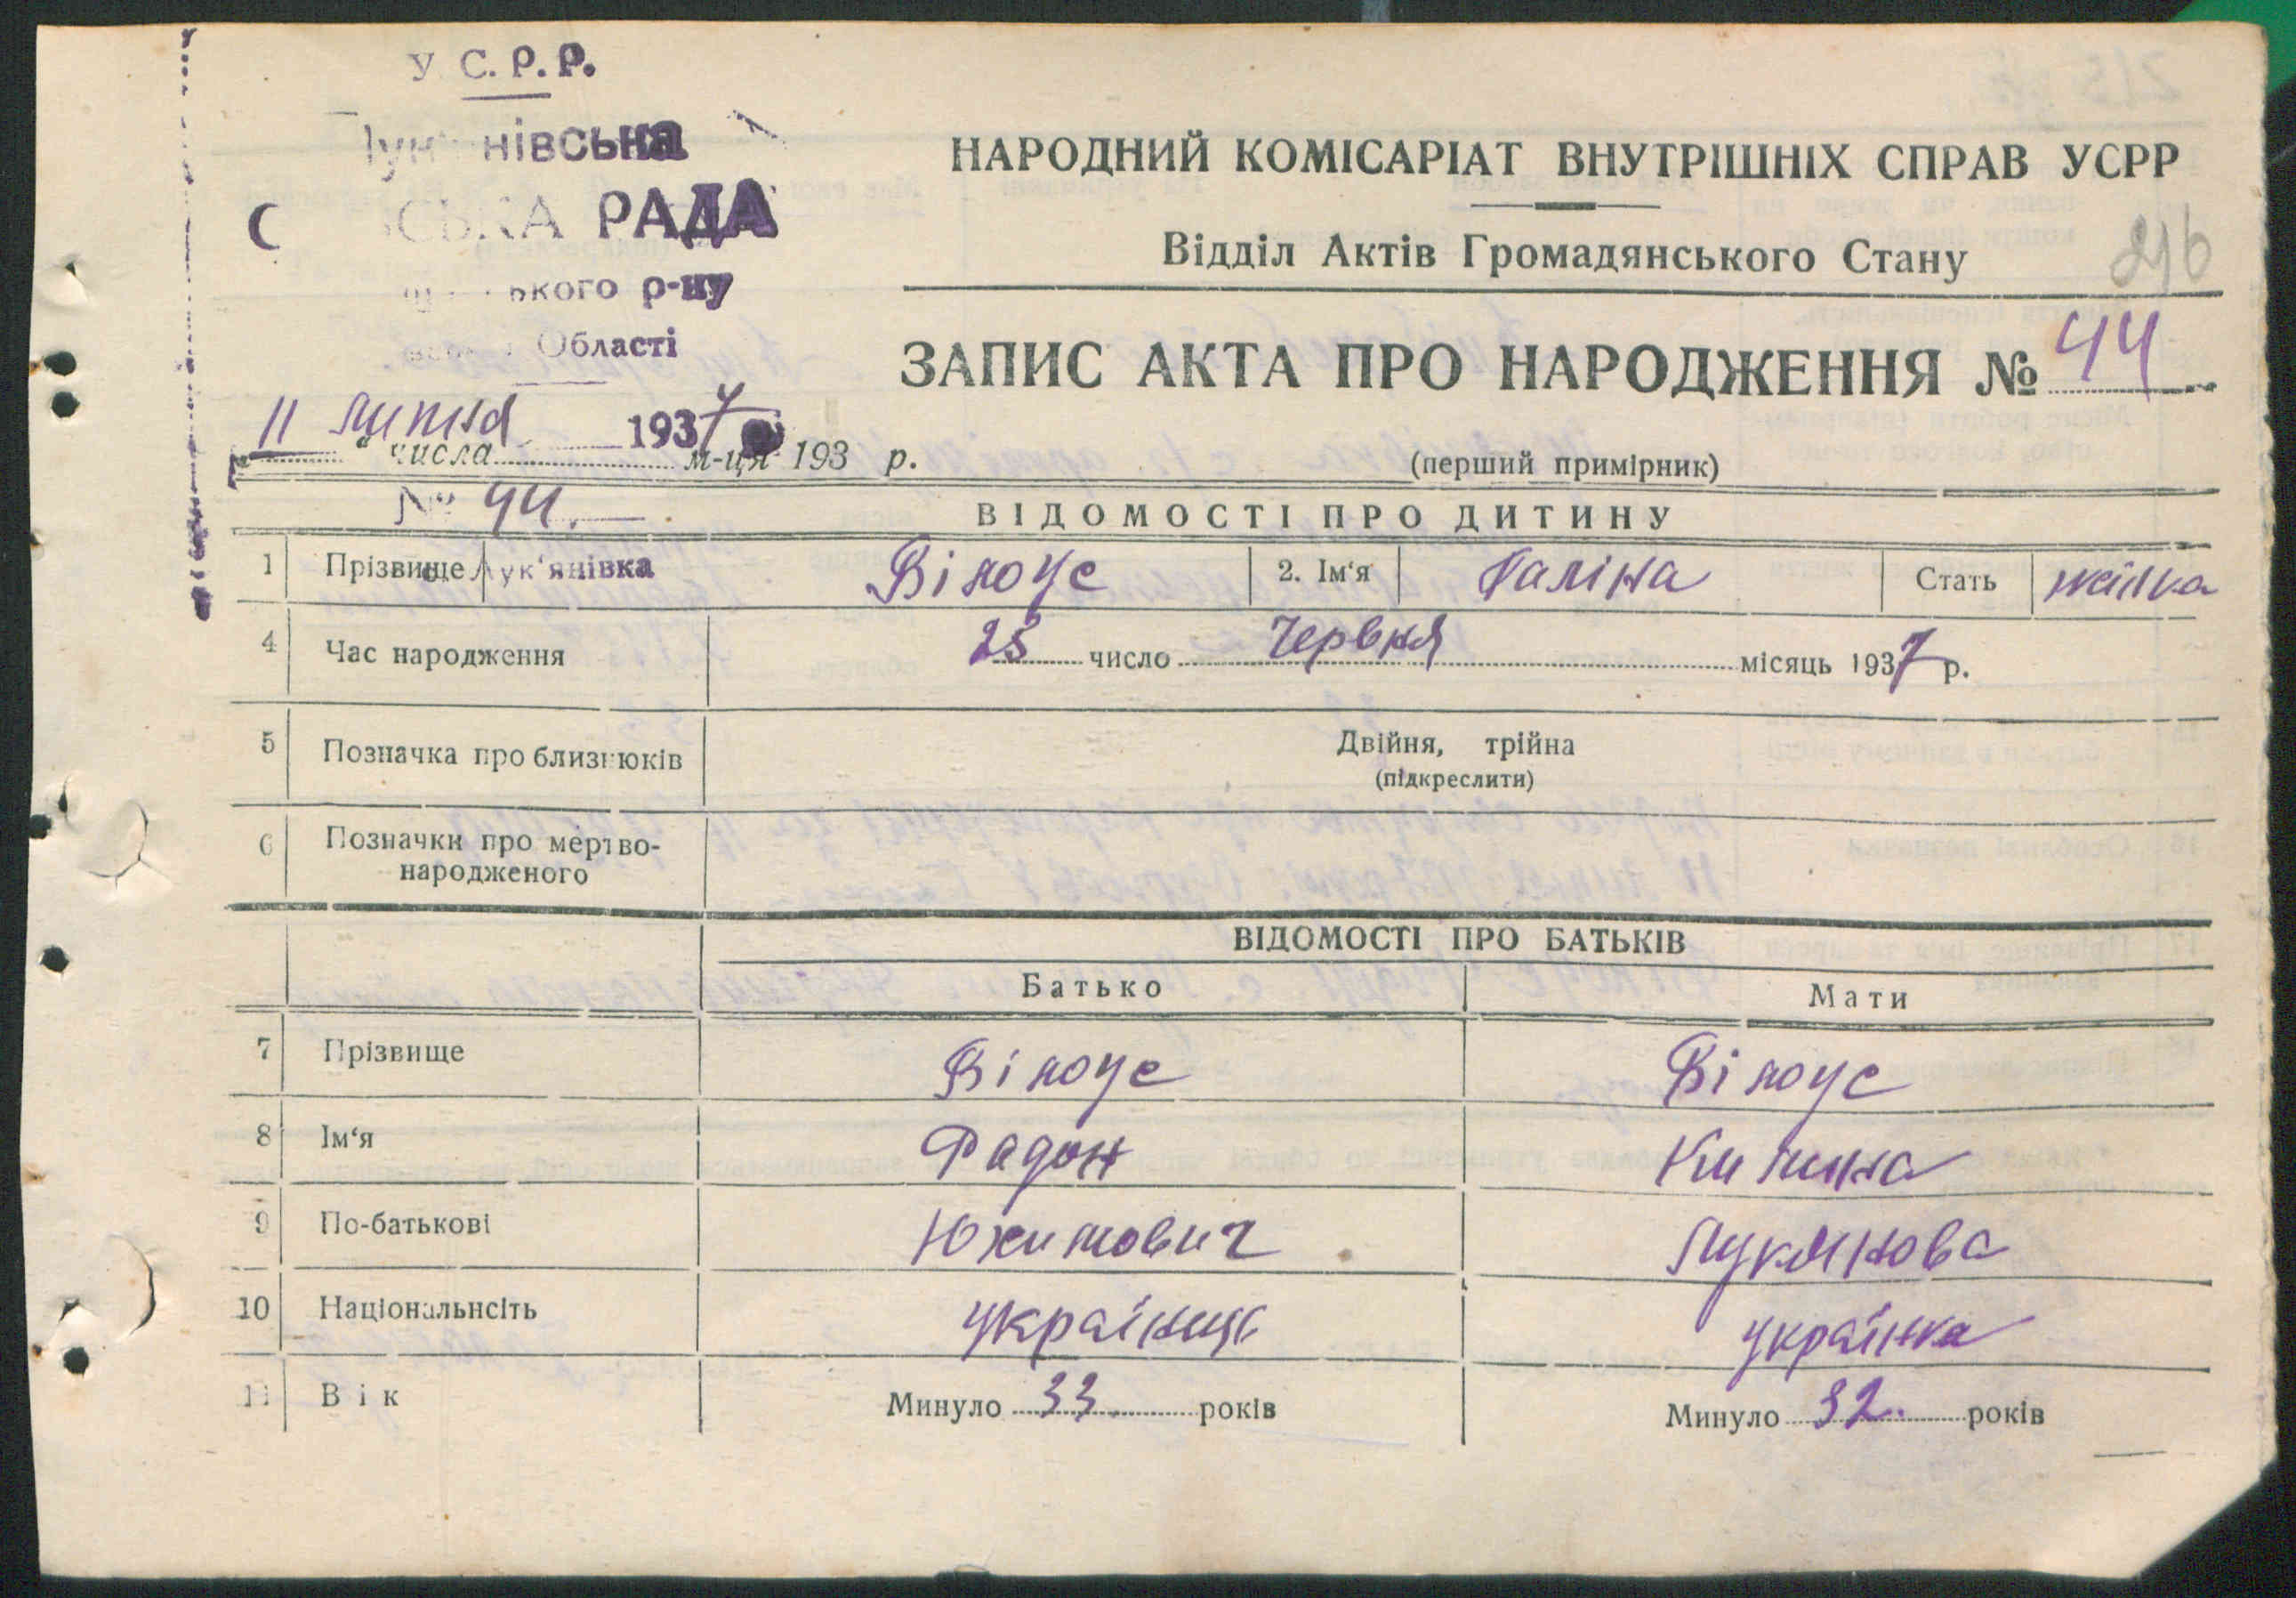 У С. Р. Р.
нівська
РАДА
р-ну
Області
11 липня 1937
числа м-ця 193 р.
№ 44.
с. Лук'янівка
НАРОДНИЙ КОМІСАРІАТ ВНУТРІШНІХ СПРАВ УСРР
Відділ Актів Громадянського Стану
216
ЗАПИС АКТА ПРО НАРОДЖЕННЯ № 44
(перший примірник)
ВІДОМОСТІ ПРО ДИТИНУ
1 Прізвище Білоус 2. Ім'я Галіна Стать жінка
4 Час народження 23 число Червня місяць 1937 р.
5 Позначка про близнюків Двійня, трійна
(підкреслити)
6 Позначки про мертво-
народженого
ВІДОМОСТІ ПРО БАТЬКІВ
Батько Мати
7 Прізвище Білоус Білоус
8 Ім'я Радон Килина
9 По-батькові Юхимович Лукянова
10 Національнсіть українць українка
11 Вік Минуло 33. років Минуло 32. років